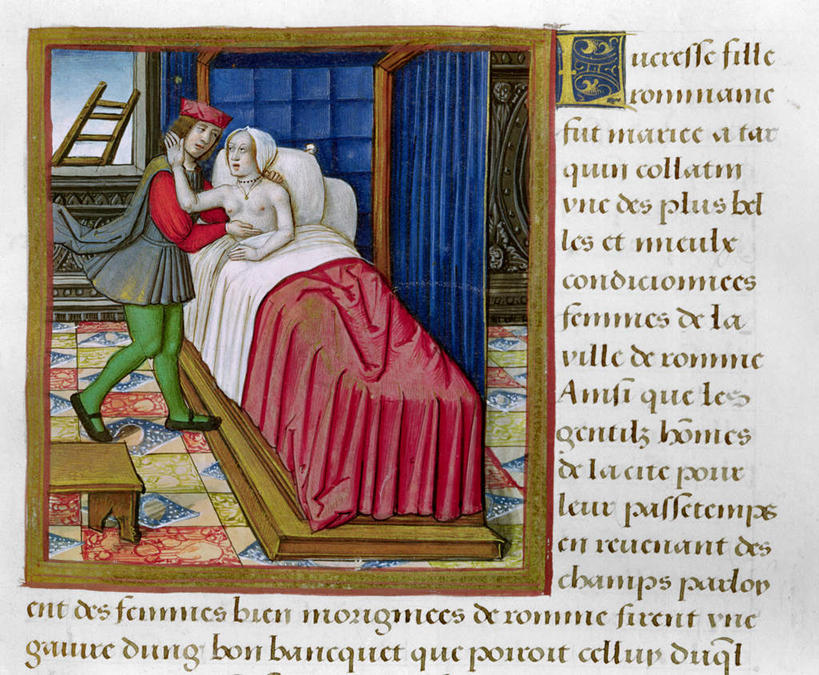 Lucresse fille
rommaine
fut mariee a tar
quin collatin
vne des plus bel
les et mieulx
condicionnees
femmes de la
ville de romme
Ainsi que les
gentilz hōmes
de la cite pour
leur passetemps
en reuenant des
champs parloy
ent des femmes bien moriginees de romme firent vne
gaiure dung bon bancquet que porroit celluy duq̄l